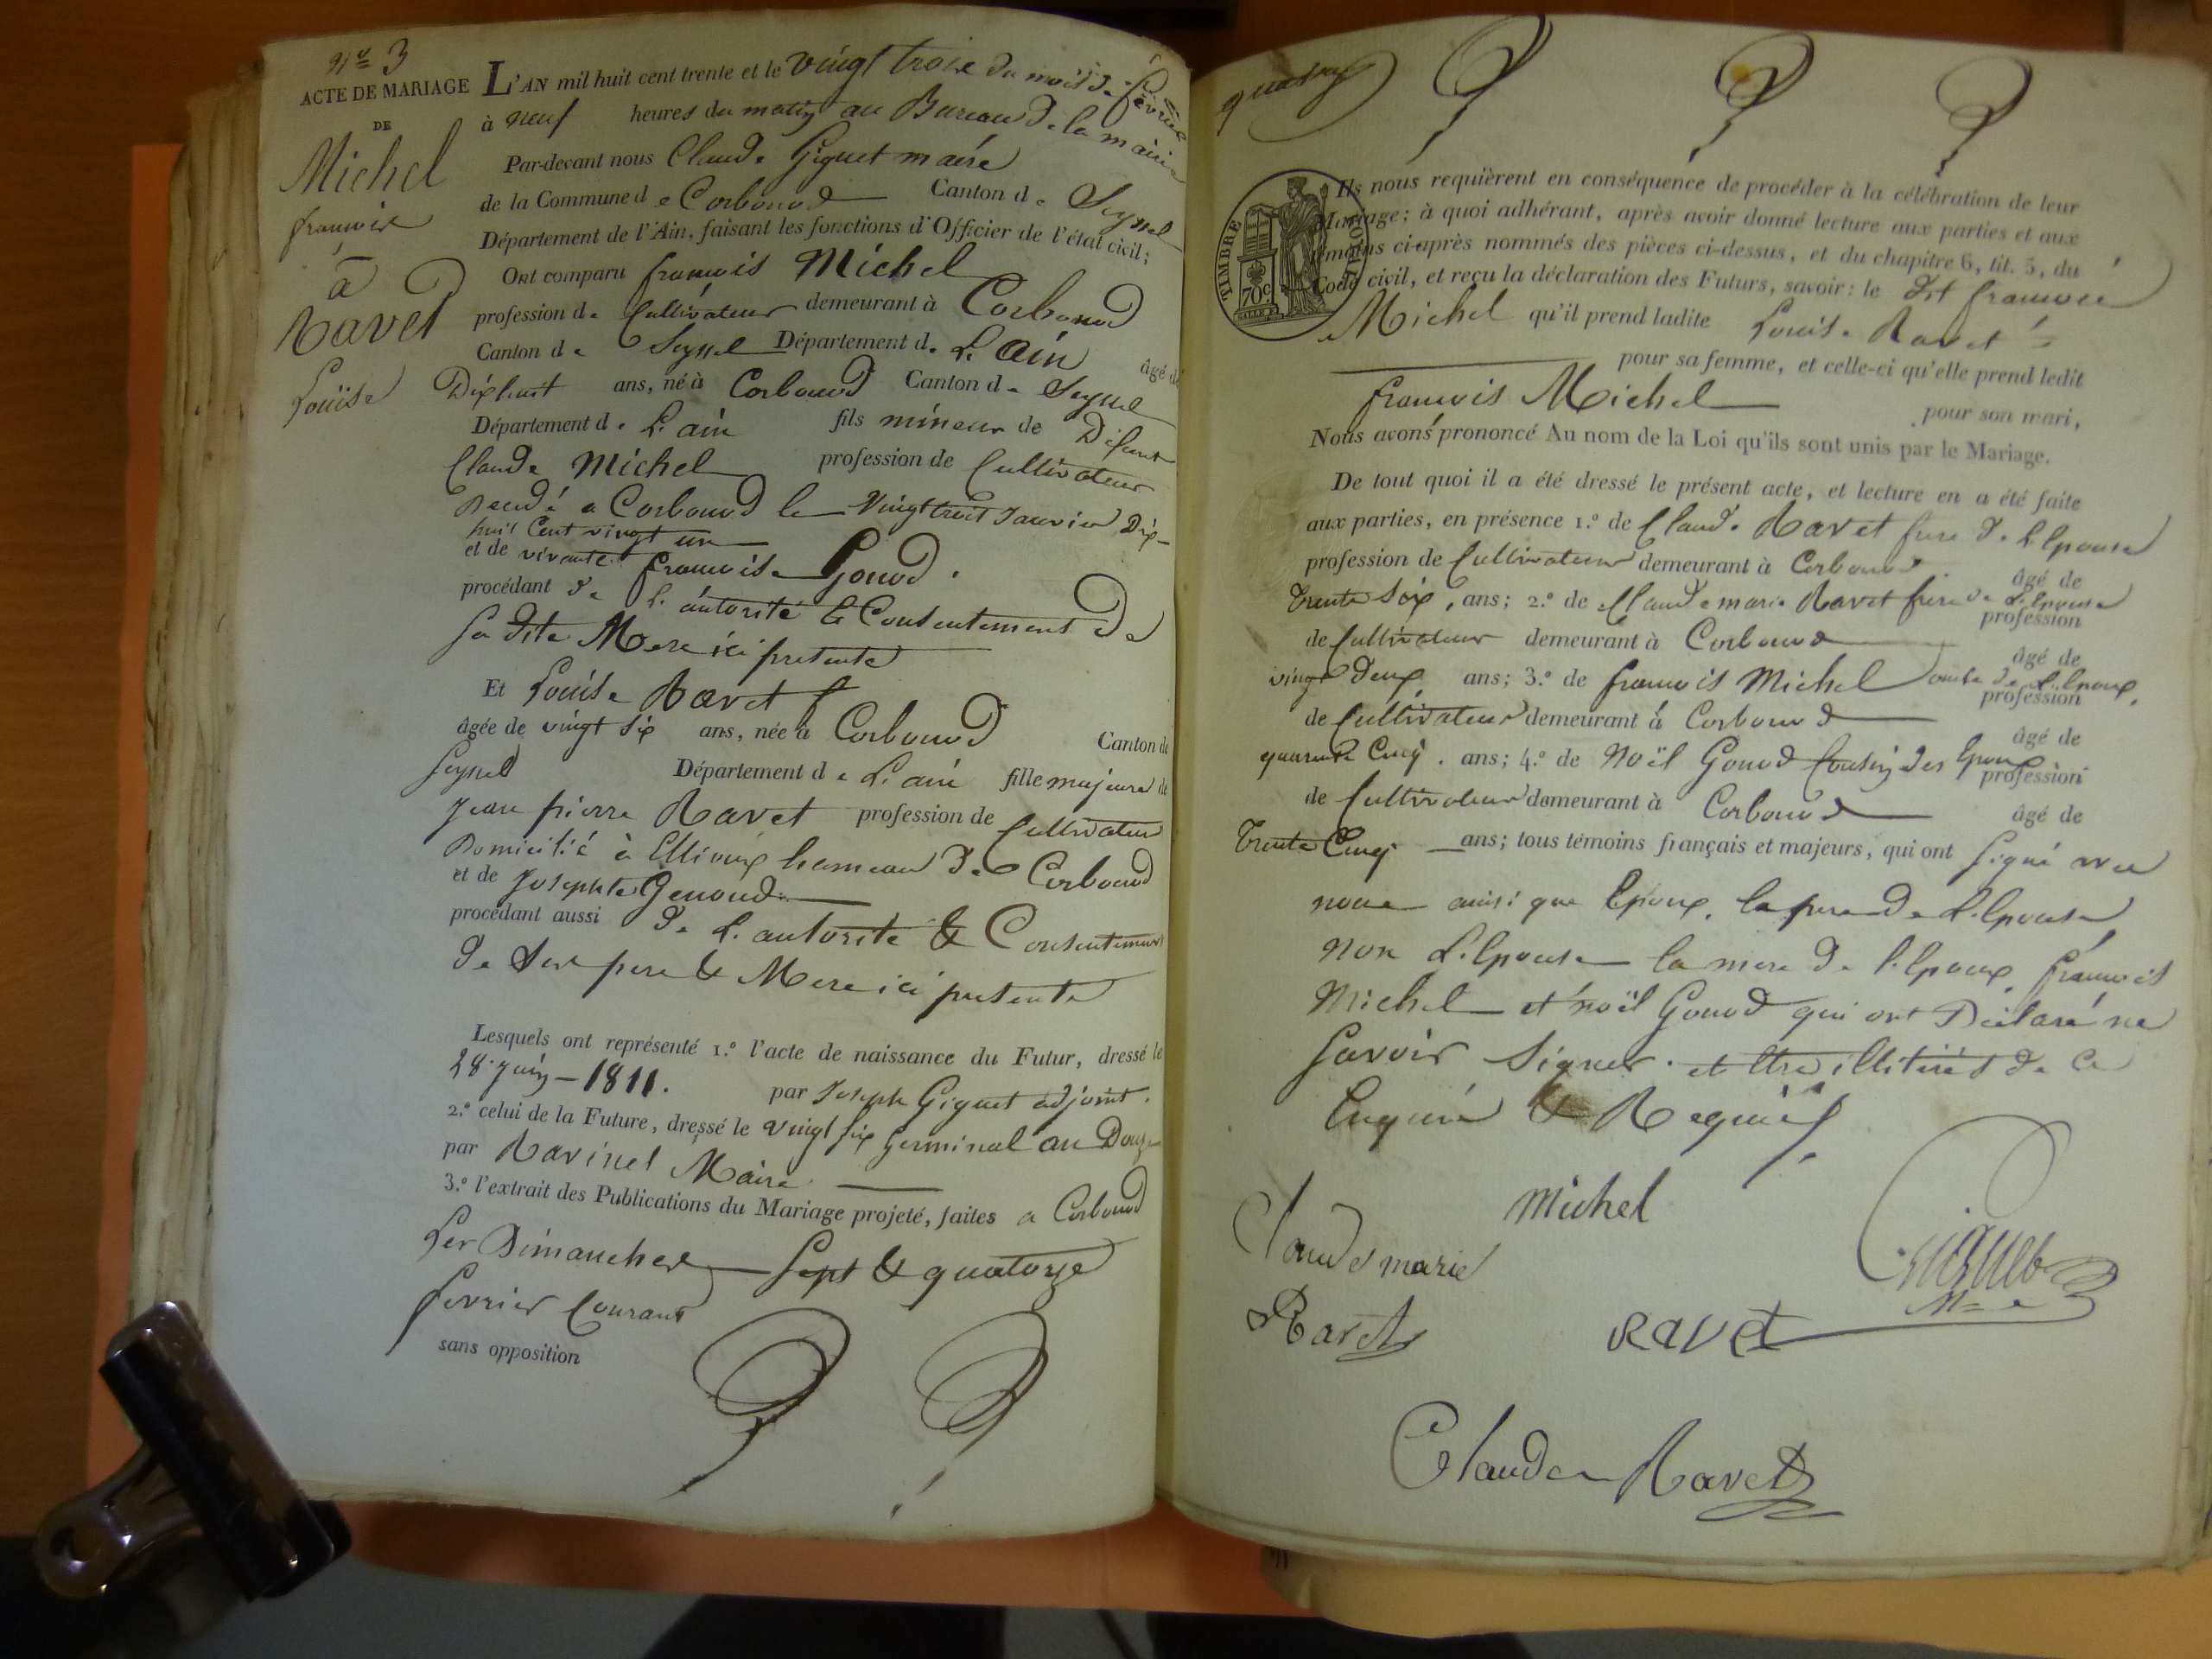 N° 3
ACTE DE MARIAGE
DE
Michel
françois
à
Ravet
Louise
L'AN mil huit cent trente et le vingt trois du mois de février
à neuf heures du matin au Bureau de la mairie
Par-devant nous Claude Giguet maire
de la Commune de Corbonod Canton de Seyssel
Département de l'Ain, faisant les fonctions d'Officier de l'état civil;
Ont comparu françois Michel
profession de Cultivateur demeurant à Corbonod
Canton de Seyssel Département de L'ain âgé de
Dixhuit ans, né à Corbonod Canton de Seyssel
Département de L'ain fils mineur de Défunt
Claude Michel profession de Cultivateur
Decedé a Corbonod le vingt trois Janvier Dix-
huit Cent vingt un
et de vivante françoise Gonod.
procédant de L'autorité & Consentement De
sa dite Mere ici presente
Et Louise Ravet
âgée de vingt six ans, née à Corbonod Canton de
Seyssel Département de L'ain fille majeure de
Jean pierre Ravet profession de Cultivateur
Domicilié à Ettioux hameau De Corbonod
et de Josephte Genoud
procédant aussi de L'autorité & Consentement
de Ses pere & Mere ici presents
Lesquels ont représenté 1.° l'acte de naissance du Futur, dressé le
28 juin - 1811. par Joseph Giguet adjoint.
2.° celui de la Future, dressé le vingt six Germinal an Douze
par Ravinet Maire
3.° l'extrait des Publications du Mariage projeté, faites a Corbonod
Les Dimanches Sept & quatorze
fevrier Courant
sans opposition
TIMBRE ROYAL
70c
Ils nous requièrent en conséquence de procéder à la célébration de leur
Mariage; à quoi adhérant, après avoir donné lecture aux parties et aux
témoins ci-après nommés des pièces ci-dessus, et du chapitre 6, tit. 5, du
Code civil, et reçu la déclaration des Futurs, savoir: le dit françois
Michel qu'il prend ladite Louise Ravet
pour sa femme, et celle-ci qu'elle prend ledit
françois Michel pour son mari,
Nous avons prononcé Au nom de la Loi qu'ils sont unis par le Mariage.
De tout quoi il a été dressé le présent acte, et lecture en a été faite
aux parties, en présence 1.° de Claude Ravet frere de L'Epouse
profession de Cultivateur demeurant à Corbonod âgé de
Trente Six, ans; 2.° de Claude marie Ravet frere de L'Epouse profession
de Cultivateur demeurant à Corbonod âgé de
vingt Deux ans; 3.° de françois Michel oncle de L'Epoux, profession
de Cultivateur demeurant à Corbonod âgé de
quarante Cinq. ans; 4.° de Noël Gonod Cousin des Epoux profession
de Cultivateur demeurant à Corbonod âgé de
Trente Cinq ans; tous témoins français et majeurs, qui ont Signé avec
nous ainsi que Epoux, le pere de L'Epouse
non L'Epouse la mere de l'Epoux, françois
Michel et noël Gonod qui ont Déclaré ne
savoir Signer. et Etre illitérés de ce
Enquis & Requis
michel
Claude marie
Ravet
Giguet
Mre
RAVET
Claude Ravet